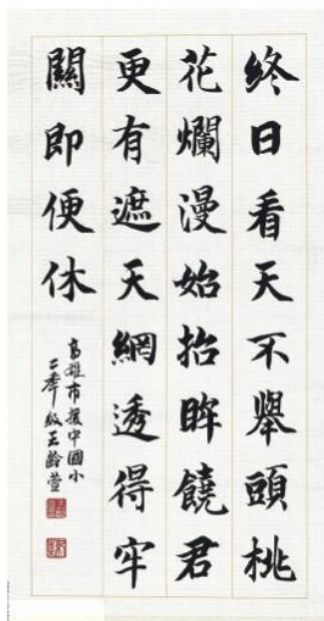 終日看天不舉頭桃
花爛漫始抬眸饒君
更有遮天網透得牢
關即便休
高雄市援中國小
二年級王齡萱